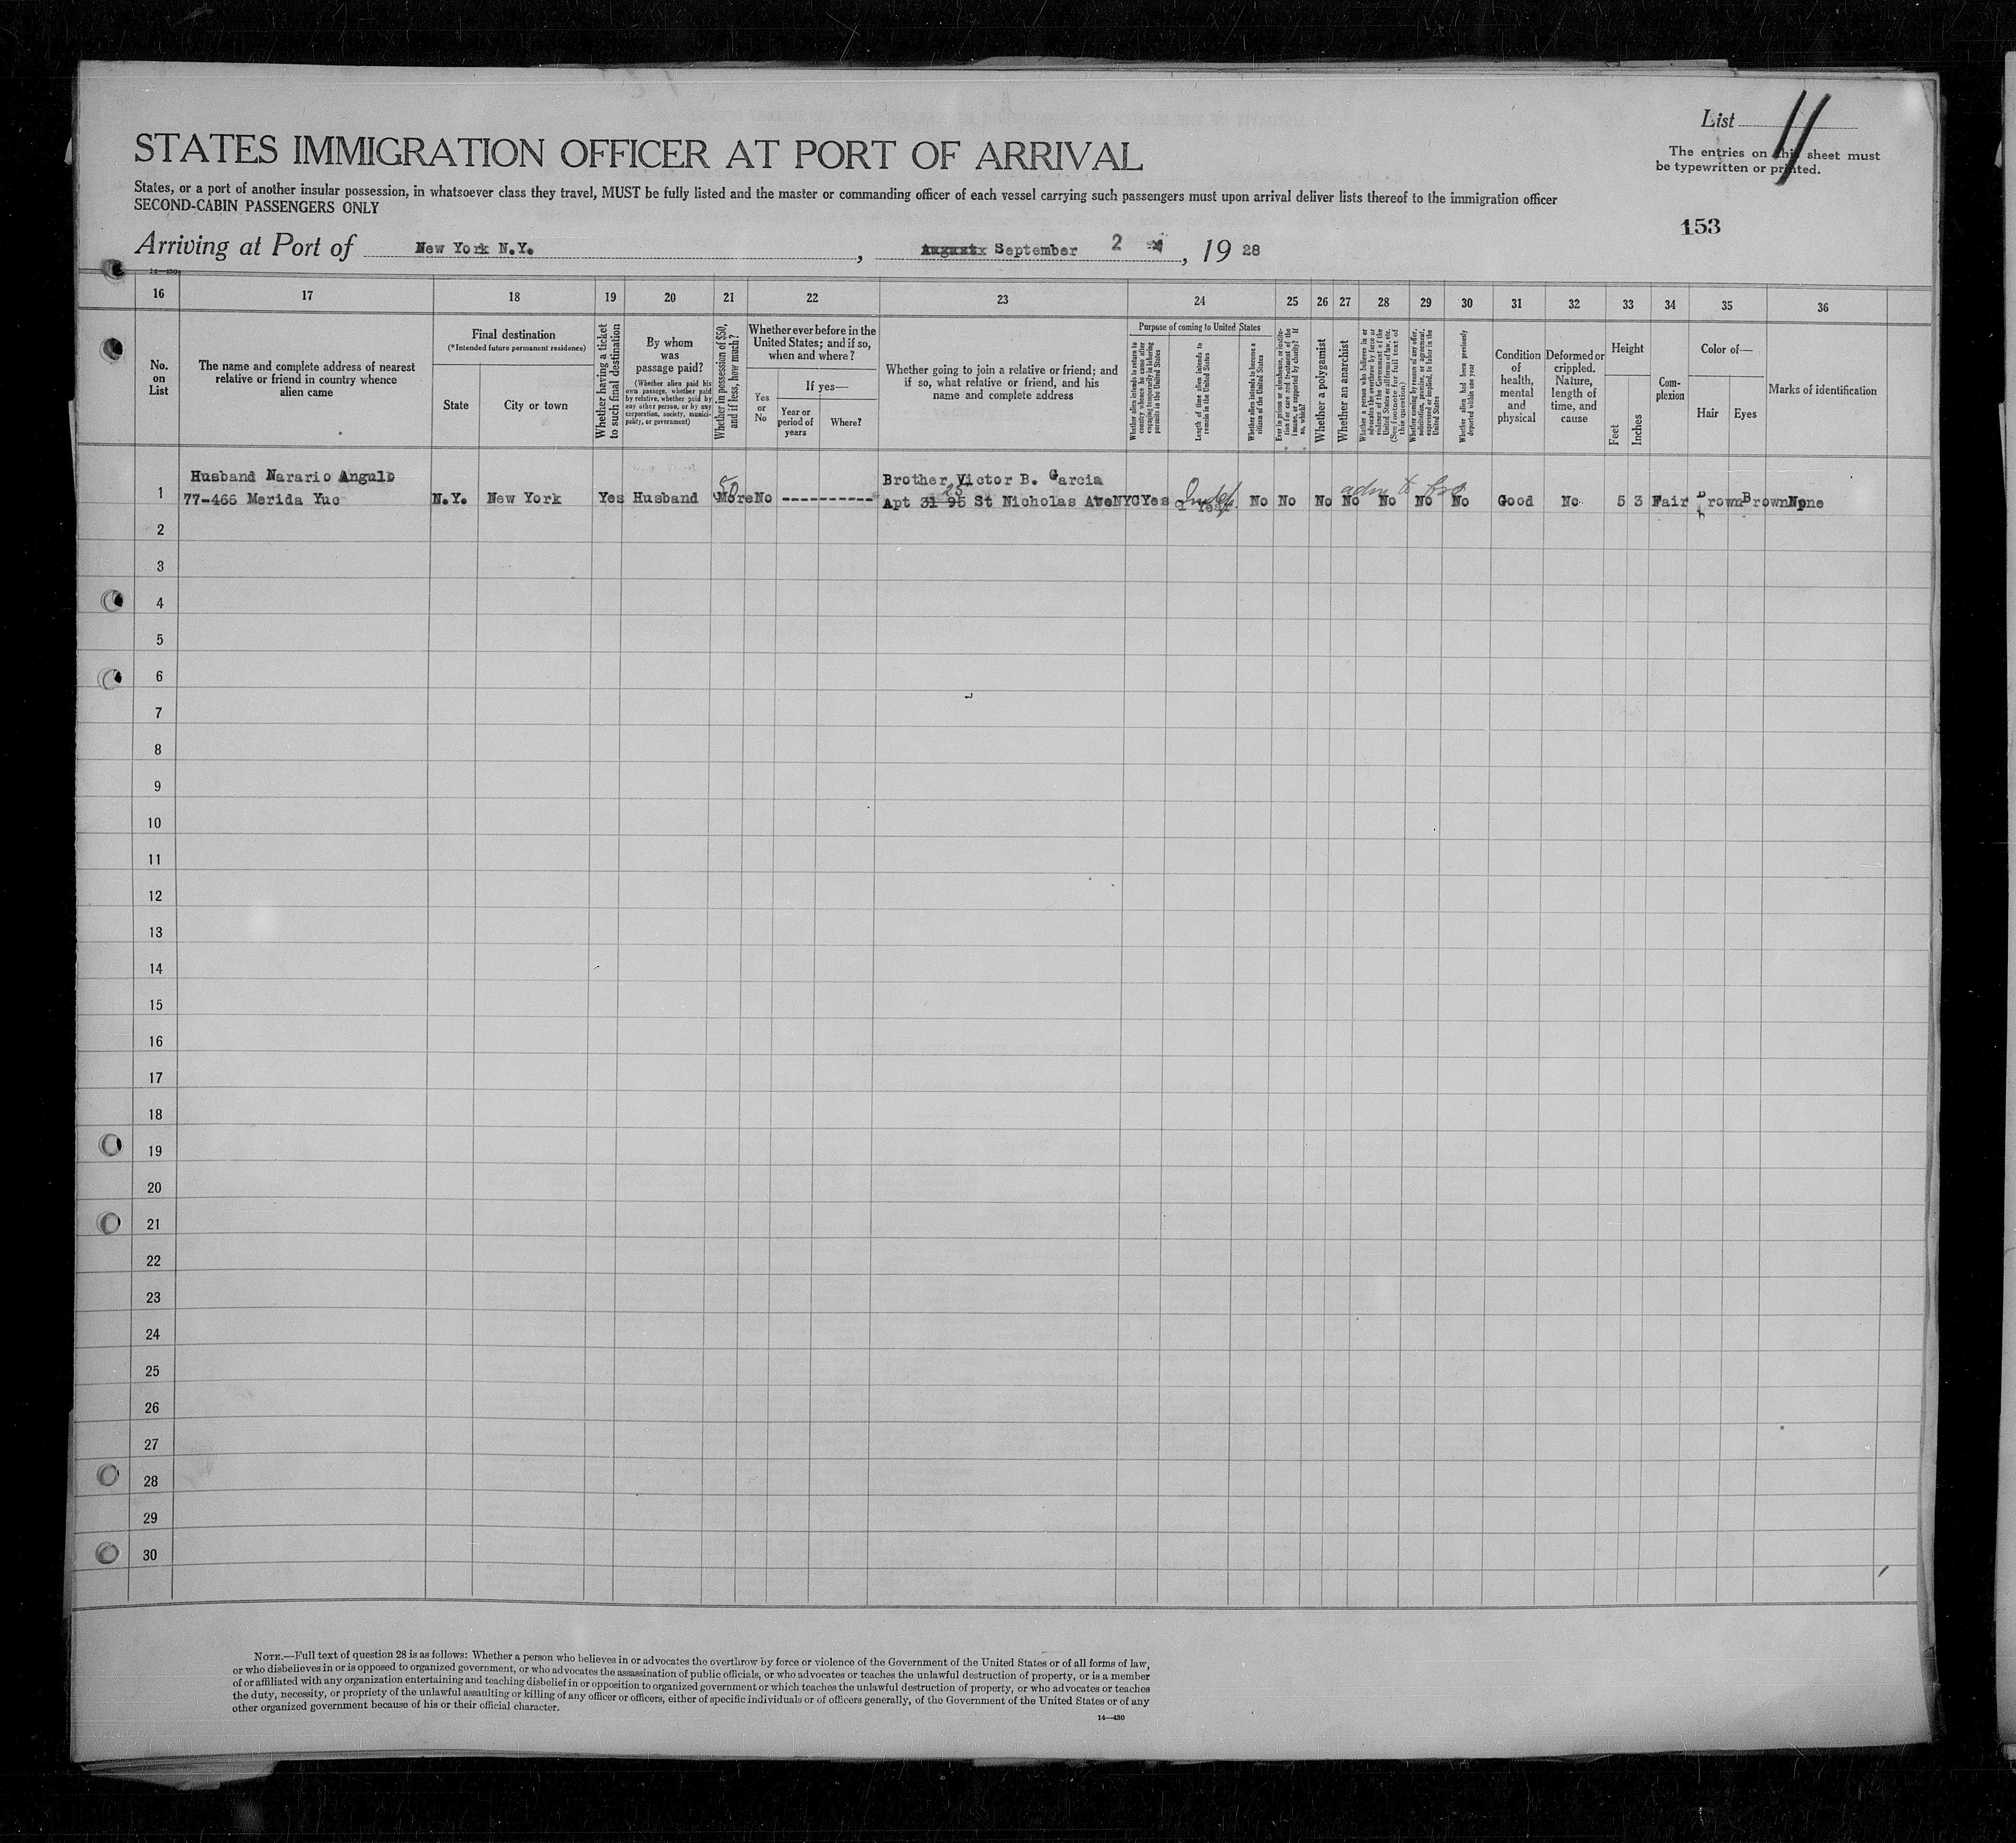 List 11
STATES IMMIGRATION OFFICER AT PORT OF ARRIVAL
The entries on this sheet must
be typewritten or printed.
States, or a port of another insular possession, in whatsoever class they travel, MUST be fully listed and the master or commanding officer of each vessel carrying such passengers must upon arrival deliver lists thereof to the immigration officer
SECOND-CABIN PASSENGERS ONLY
153
Arriving at Port of New York N.Y. , Augustx September 2 , 19 28
14—430
16 17 18 19 20 21 22 23 24 25 26 27 28 29 30 31 32 33 34 35 36
No.
on
List
The name and complete address of nearest
relative or friend in country whence
alien came
Final destination
(*Intended future permanent residence)
State
City or town
Whether having a ticket
to such final destination
By whom
was
passage paid?
(Whether alien paid his
own passage, whether paid
by relative, whether paid by
any other person, or by any
corporation, society, munici-
pality, or government)
Whether in possession of $50,
and if less, how much?
Whether ever before in the
United States; and if so,
when and where?
Yes
or
No
If yes—
Year or
period of
years
Where?
Whether going to join a relative or friend; and
if so, what relative or friend, and his
name and complete address
Purpose of coming to United States
Whether alien intends to return to
country whence he came after
engaging temporarily in laboring
pursuits in the United States
Length of time alien intends to
remain in the United States
Whether alien intends to become a
citizen of the United States
Ever in prison or almshouse, or institu-
tion for care and treatment of the
insane, or supported by charity? If
so, which?
Whether a polygamist
Whether an anarchist
Whether a person who believes in or
advocates the overthrow by force or
violence of the Government of the
United States or all forms of law, etc.
(See footnote for full text of
this question)
Whether coming by reason of any offer,
solicitation, promise, or agreement,
expressed or implied, to labor in the
United States
Whether alien had been previously
deported within one year
Condition
of
health,
mental
and
physical
Deformed or
crippled.
Nature,
length of
time, and
cause
Height
Feet
Inches
Com-
plexion
Color of—
Hair
Eyes
Marks of identification
Husband Narario Angulo
Brother Victor B. Garcia
50
25
Indef
adm
1 77-466 Merida Yuc N.Y. New York Yes Husband More No ----------- Apt 31 95 St Nicholas Ave NYC Yes 1 Year No No No No No No No Good No 5 3 Fair Brown Brown None
2
3
4
5
6
7
8
9
10
11
12
13
14
15
16
17
18
19
20
21
22
23
24
25
26
27
28
29
30
NOTE.—Full text of question 28 is as follows: Whether a person who believes in or advocates the overthrow by force or violence of the Government of the United States or of all forms of law,
or who disbelieves in or is opposed to organized government, or who advocates the assassination of public officials, or who advocates or teaches the unlawful destruction of property, or is a member
of or affiliated with any organization entertaining and teaching disbelief in or opposition to organized government or which teaches the unlawful destruction of property, or who advocates or teaches
the duty, necessity, or propriety of the unlawful assaulting or killing of any officer or officers, either of specific individuals or of officers generally, of the Government of the United States or of any
other organized government because of his or their official character.
14—430